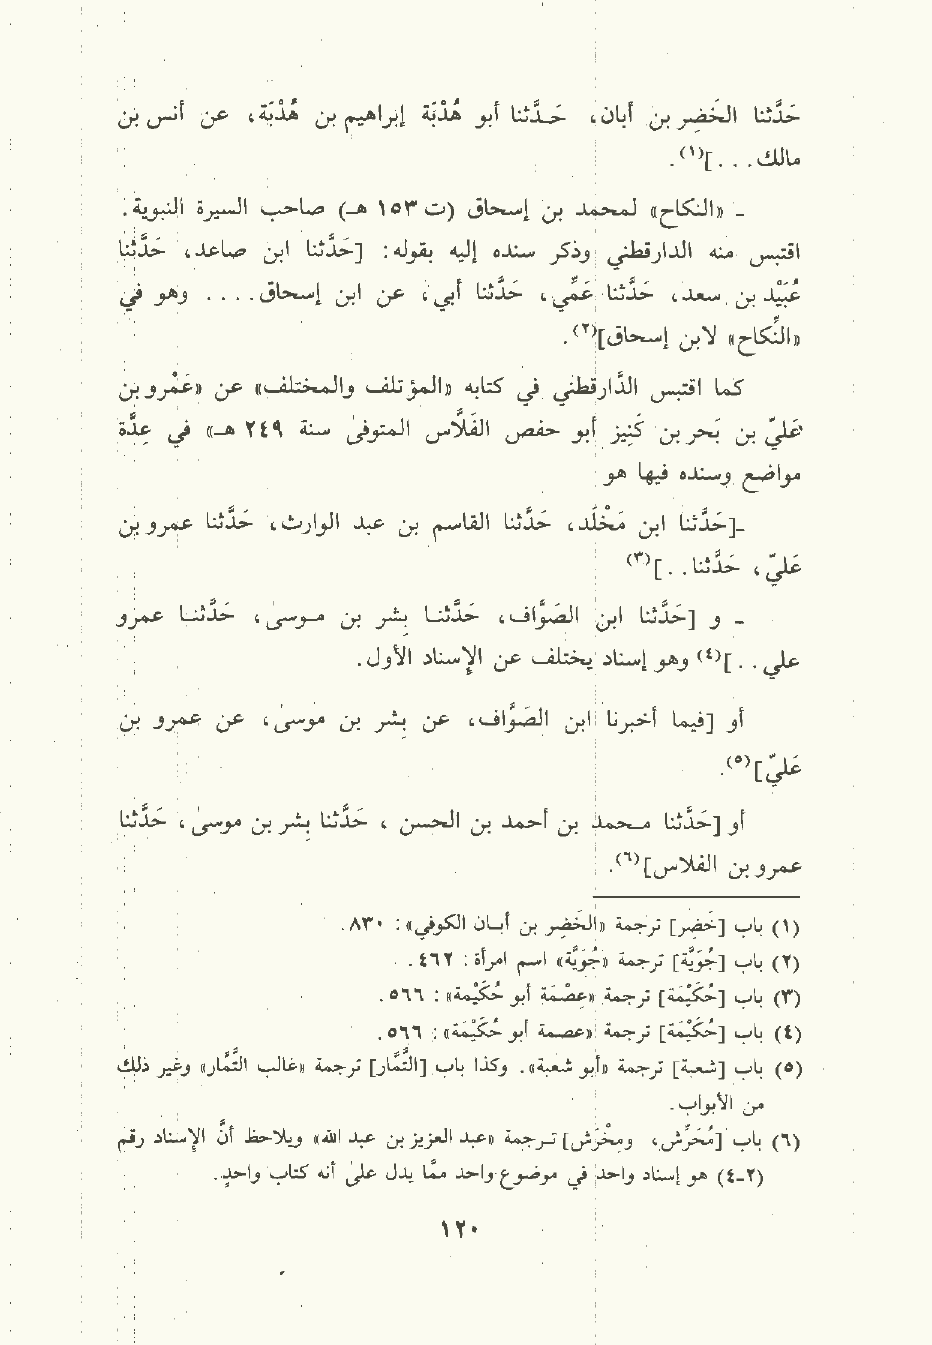 حَدَّثنا الخَضِر بن أبان، حَـدَّثنا أبو هُدْبَة إبراهيم بن هُدْبَة، عن أنس بن
مالك. . .](١).
ـ «النكاح» لمحمد بن إسحاق (ت ١٥٣ هـ) صاحب السيرة النبوية.
اقتبس منه الدارقطني وذكر سنده إليه بقوله: [حَدَّثنا ابن صاعد، حَدَّثنا
عُبَيْد بن سعد، حَدَّثنا عَمِّي، حَدَّثنا أبي، عن ابن إسحاق. . . . وهو في
«النِّكاح» لابن إسحاق](٢).
كما اقتبس الدَّارقطني في كتابه «المؤتلف والمختلف» عن «عَمْرو بن
عَليّ بن بَحر بن كَنِيز أبو حفص الفَلَّاس المتوفىٰ سنة ٢٤٩ هـ» في عِدَّة
مواضع وسنده فيها هو
ـ[حَدَّثنا ابن مَخْلَد، حَدَّثنا القاسم بن عبد الوارث، حَدَّثنا عمرو بن
عَليّ، حَدَّثنا. . .](٣)
ـ و [حَدَّثنا ابن الصَوَّاف، حَدَّثنـا بِشر بن مـوسىٰ، حَدَّثنـا عمرو
علي. . .](٤) وهو إسناد يختلف عن الإِسناد الأول.
أو [فيما أخبرنا ابن الصَوَّاف، عن بِشر بن موسىٰ، عن عمرو بن
عَليّ](٥).
أو [حَدَّثنا محمـد بن أحمد بن الحسن ، حَدَّثنا بِشر بن موسىٰ، حَدَّثنا
عمرو بن الفلاس](٦).
(١) باب [خَضِر] ترجمة «الخَضِر بن أبـان الكوفي»: ٨٣٠.
(٢) باب [جُوَيَّة] ترجمة «جُوَيَّة» اسم امرأة: ٤٦٢.
(٣) باب [حُكَيْمَة] ترجمة «عِصْمَة أبو حُكَيْمَة»: ٥٦٦.
(٤) باب [حُكَيْمَة] ترجمة «عصمة أبو حُكَيْمَة»: ٥٦٦.
(٥) باب [شعبة] ترجمة «أبو شعبة». وكذا باب [التَّمَّار] ترجمة «غالب التَّمَّار» وغير ذلك
من الأبواب.
(٦) باب [مُحَرِّش، ومِخْرَش] ترجـمة «عبد العزيز بن عبد الله» ويلاحظ أنَّ الإِسناد رقم
(٢ـ٤) هو إسناد واحد في موضوع واحد ممَّا يدل علىٰ أنه كتاب واحِد.
١٢٠